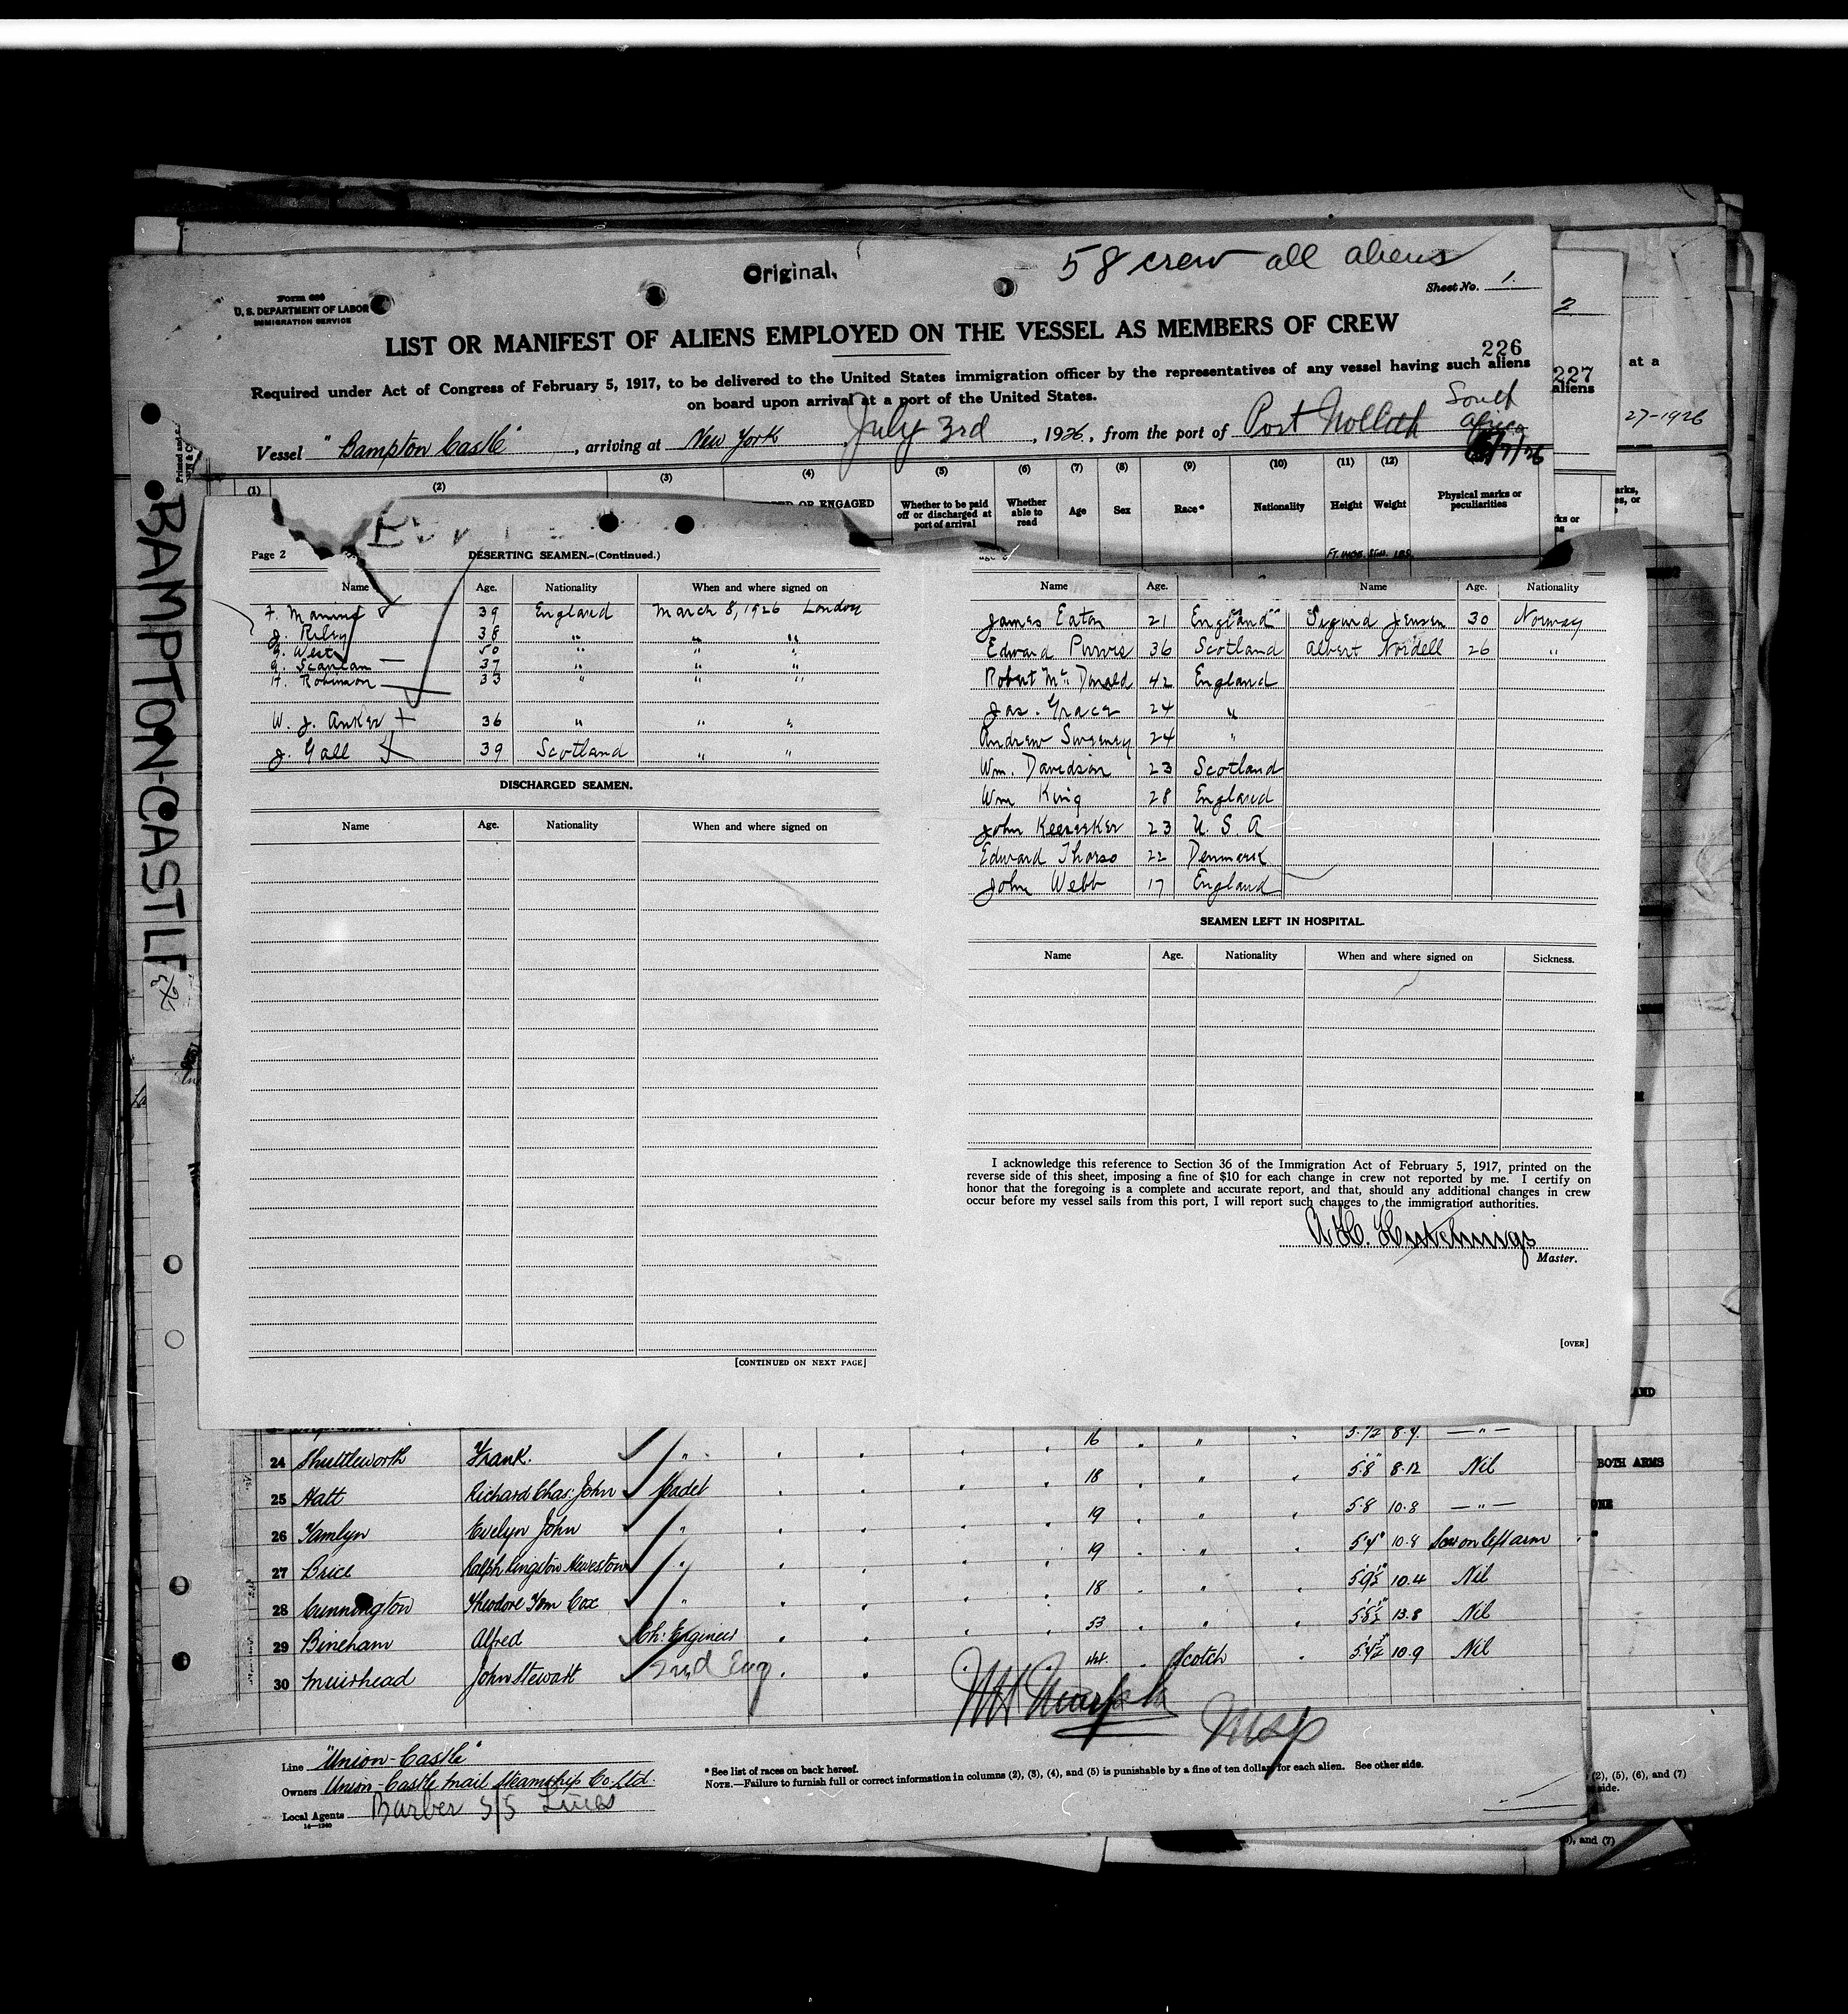 Original.
58 crew all aliens
Form 680
U. S. DEPARTMENT OF LABOR
IMMIGRATION SERVICE
Sheet No. 1.
2
LIST OR MANIFEST OF ALIENS EMPLOYED ON THE VESSEL AS MEMBERS OF CREW
226
227
Required under Act of Congress of February 5, 1917, to be delivered to the United States immigration officer by the representatives of any vessel having such aliens
on board upon arrival at a port of the United States.
aliens
at a
27-1926
Vessel "Bampton Castle", arriving at New York July 3rd, 1926, from the port of Port Nolloth South Africa
(1) (2) (3) (4) (5) (6) (7) (8) (9) (10) (11) (12)
OR ENGAGED Whether to be paid off or discharged at port of arrival Whether able to read Age Sex Race* Nationality Height Weight Physical marks or peculiarities
BAMPTON-CASTLE
Page 2 DESERTING SEAMEN.-(Continued.)
Name Age. Nationality When and where signed on
39 England March 8, 1926 London
J. Riley 38 " " "
G. West 50 " " "
G. Scanlan 37 " " "
H. Robinson 33 " " "
W. J. Anker 36 " " "
J. Gall 39 Scotland " "
DISCHARGED SEAMEN.
Name Age. Nationality When and where signed on
[CONTINUED ON NEXT PAGE]
Name Age. Nationality Name Age. Nationality
James Eaton 21 England Sigurd Jensen 30 Norway
Edward Purvis 36 Scotland Albert Nordell 26 "
Robert Mc Donald 42 England
Jas. Grace 24 "
Andrew Sweeney 24 "
Wm. Davidson 23 Scotland
Wm King 28 England
John 23 U. S. A
Edward Thorso 22 Denmark
John Webb 17 England
SEAMEN LEFT IN HOSPITAL.
Name Age. Nationality When and where signed on Sickness.
I acknowledge this reference to Section 36 of the Immigration Act of February 5, 1917, printed on the
reverse side of this sheet, imposing a fine of $10 for each change in crew not reported by me. I certify on
honor that the foregoing is a complete and accurate report, and that, should any additional changes in crew
occur before my vessel sails from this port, I will report such changes to the immigration authorities.
A. H. Hutchings
Master.
[OVER]
16 " 5.7½ 8.4. — " —
24 Shuttleworth Frank. " 18 " 5.8" 8.12 Nil
BOTH ARMS
25 Hatt Richard Chas: John Cadet 19 " 5.8 10.8 — " —
26 Tamlyn Evelyn John " 19 " 5.4" 10.8 Scar on left arm
27 Brice Ralph Kingston " 18 " 5.9½ 10.4 Nil
28 Cunnington Theodore Tom Cox " 53 " 5.8½ 13.8 Nil
29 Bincham Alfred Ch: Engineer 44. Scotch 5.4½ 10.9 Nil
30 Muirhead John Stewart 2nd Eng
Line "Union-Castle"
Owners Union-Castle Mail Steamship Co. Ltd.
Local Agents Barber S/S Lines
14—1240
* See list of races on back hereof.
NOTE.—Failure to furnish full or correct information in columns (2), (3), (4), and (5) is punishable by a fine of ten dollars for each alien. See other side.
(2), (5), (6), and (7)
side.
), and (7)